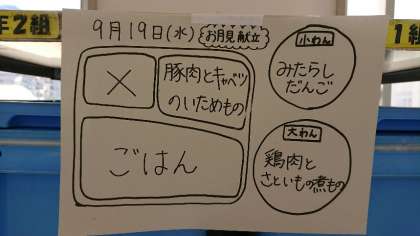 年2組
1組
9月19日(水) お月見献立
×
豚肉とキャベツ
のいためもの
ごはん
小わん
みたらし
だんご
大わん
鶏肉と
さといもの煮もの